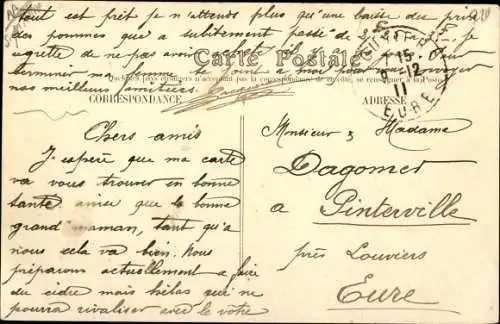 tout est prêt je n'attends plus qu'une baisse du prix
des pommes que a subitement passé de
regrette de ne pas avoir
terminer ma
nos meilleurs amitiés.
Carte Postale
CORRESPONDANCE
ADRESSE
15-12
11
EURE
Chers amis
J'espère que ma carte
va vous trouver en bonne
santé ainsi que la bonne
grand'maman, tant qu'à
nous cela va bien. Nous
préparons actuellement à faire
du cidre mais hélas qui ne
pourra rivaliser avec le votre
Monsieur & Madame
Dagomet
a Pinterville
près Louviers
Eure